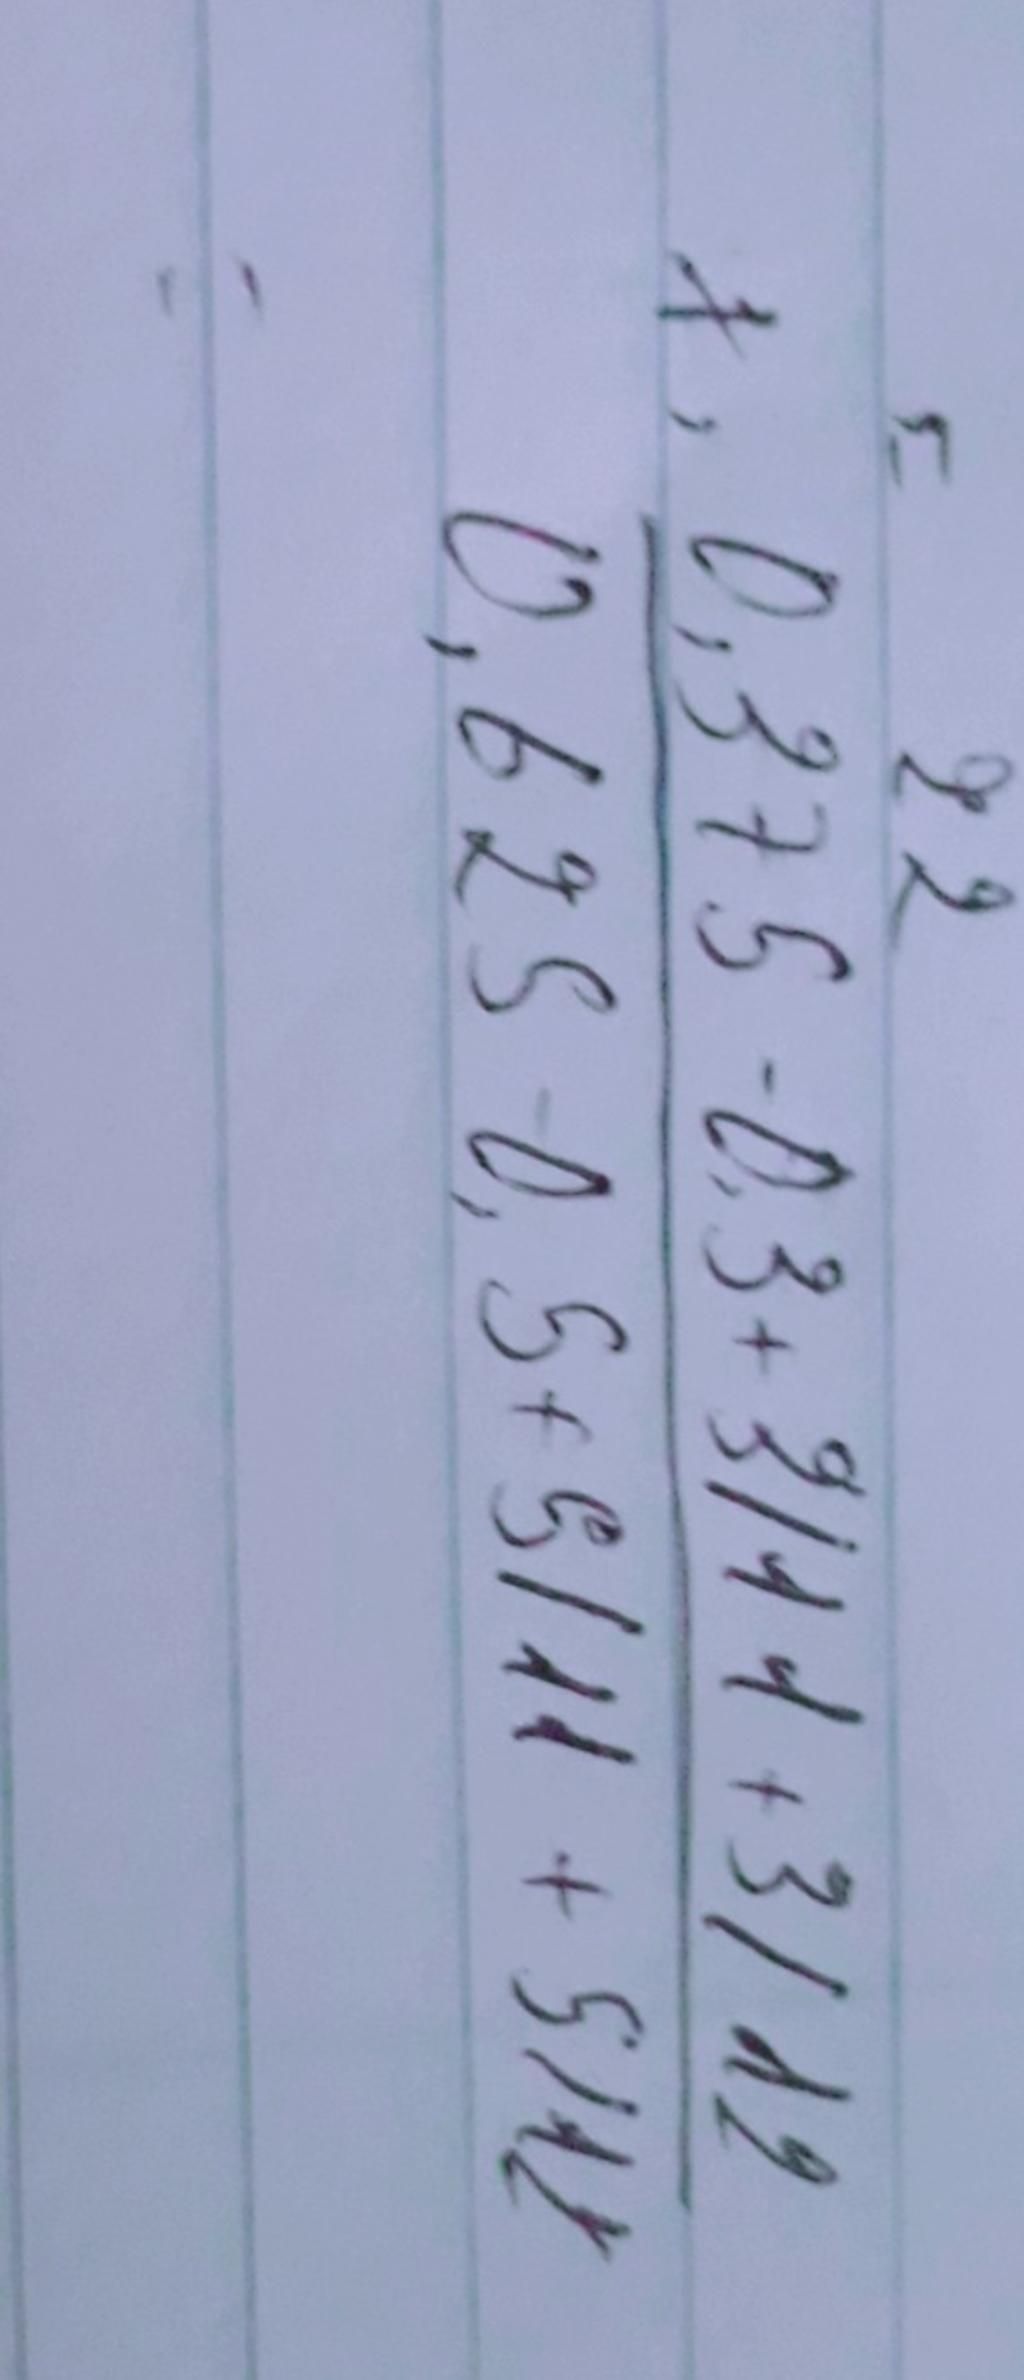 = 22
7, 0,375 - 0,3 + 3/11 + 3/12
0,625 - 0,5 + 5/11 + 5/12
=